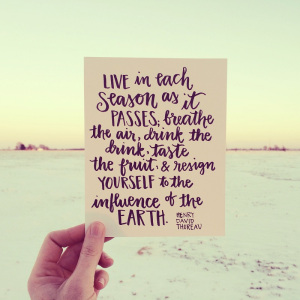 LIVE in each
Season as it
PASSES; breathe
the air, drink the
drink, taste
the fruit; & resign
YOURSELF to the
influence of the
EARTH.
HENRY
DAVID
THOREAU